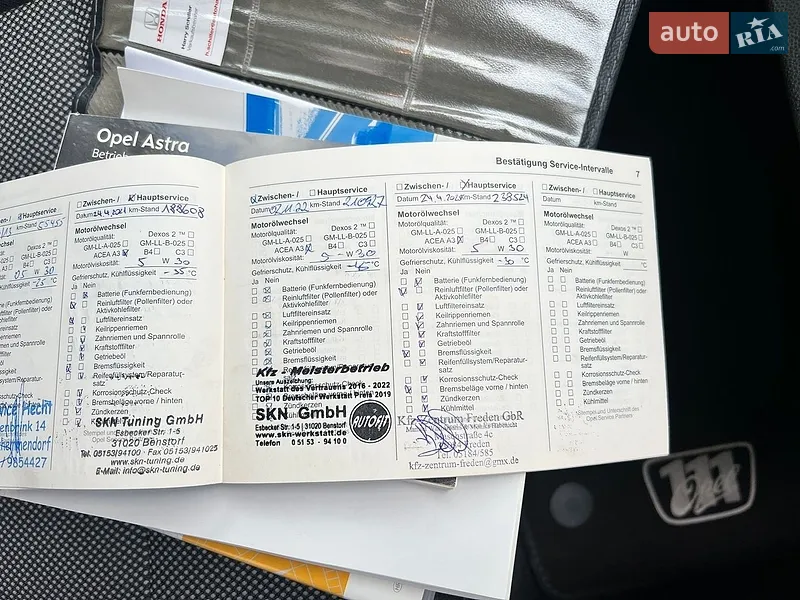 HONDA
Harry Schiller
auto
RIA
.com
Opel Astra
Bestätigung Service-Intervalle
7
Hauptservice
55455
Zwischen- / Hauptservice
Datum 24.4.2021 km-Stand 188608
Motorölwechsel
Motorölqualität: Dexos 2 ™
GM-LL-A-025 GM-LL-B-025
ACEA A3 B4 C3
Motorölviskosität: 5 W 30
Gefrierschutz, Kühlflüssigkeit -35 °C
Ja Nein
Batterie (Funkfernbedienung)
Reinluftfilter (Pollenfilter) oder
Aktivkohlefilter
Luftfiltereinsatz
Keilrippenriemen
Zahnriemen und Spannrolle
Kraftstofffilter
Getriebeöl
Bremsflüssigkeit
Reifenfüllsystem/Reparatur-
satz
Korrosionsschutz-Check
Bremsbeläge vorne / hinten
Zündkerzen
SKN Tuning GmbH
Esbecker Str. 1-5
31020 Benstorf
Tel. 05153/94100 · Fax 05153/941025
www.skn-tuning.de
E-Mail: info@skn-tuning.de
Zwischen- / Hauptservice
Datum 02.11.22 km-Stand
Motorölwechsel
Motorölqualität: Dexos 2 ™
GM-LL-A-025 GM-LL-B-025
ACEA A3 B4 C3
Motorölviskosität: 5 W 30
Gefrierschutz, Kühlflüssigkeit °C
Ja Nein
Batterie (Funkfernbedienung)
Reinluftfilter (Pollenfilter) oder
Aktivkohlefilter
Luftfiltereinsatz
Keilrippenriemen
Zahnriemen und Spannrolle
Kraftstofffilter
Getriebeöl
Bremsflüssigkeit
Kfz - Meisterbetrieb
Unsere Auszeichung:
Werkstatt des Vertrauens 2016 - 2022
TOP 10 Deutscher Werkstatt Preis 2019
SKN GmbH
Esbecker Str. 1-5 | 31020 Benstorf
www.skn-werkstatt.de
Telefon 0 51 53 - 94 10 0
AUTOFIT
Zwischen- / Hauptservice
Datum 24.4.2024 km-Stand 238524
Motorölwechsel
Motorölqualität: Dexos 2 ™
GM-LL-A-025 GM-LL-B-025
ACEA A3 B4 C3
Motorölviskosität: 5 W 30
Gefrierschutz, Kühlflüssigkeit -30 °C
Ja Nein
Batterie (Funkfernbedienung)
Reinluftfilter (Pollenfilter) oder
Aktivkohlefilter
Luftfiltereinsatz
Keilrippenriemen
Zahnriemen und Spannrolle
Kraftstofffilter
Getriebeöl
Bremsflüssigkeit
Reifenfüllsystem/Reparatur-
satz
Korrosionsschutz-Check
Bremsbeläge vorne / hinten
Zündkerzen
Kühlmittel
Kfz-Zentrum Freden GbR
Tel. 05184/585
kfz-zentrum-freden@gmx.de
Zwischen- / Hauptservice
Datum km-Stand
Motorölwechsel
Motorölqualität: Dexos 2 ™
GM-LL-A-025 GM-LL-B-025
ACEA A3 B4 C3
Motorölviskosität: W
Gefrierschutz, Kühlflüssigkeit °C
Ja Nein
Batterie (Funkfernbedienung)
Reinluftfilter (Pollenfilter) oder
Aktivkohlefilter
Luftfiltereinsatz
Keilrippenriemen
Zahnriemen und Spannrolle
Kraftstofffilter
Getriebeöl
Bremsflüssigkeit
Reifenfüllsystem/Reparatur-
satz
Korrosionsschutz-Check
Bremsbeläge vorne / hinten
Zündkerzen
Kühlmittel
Stempel und Unterschrift des
Opel Service Partners